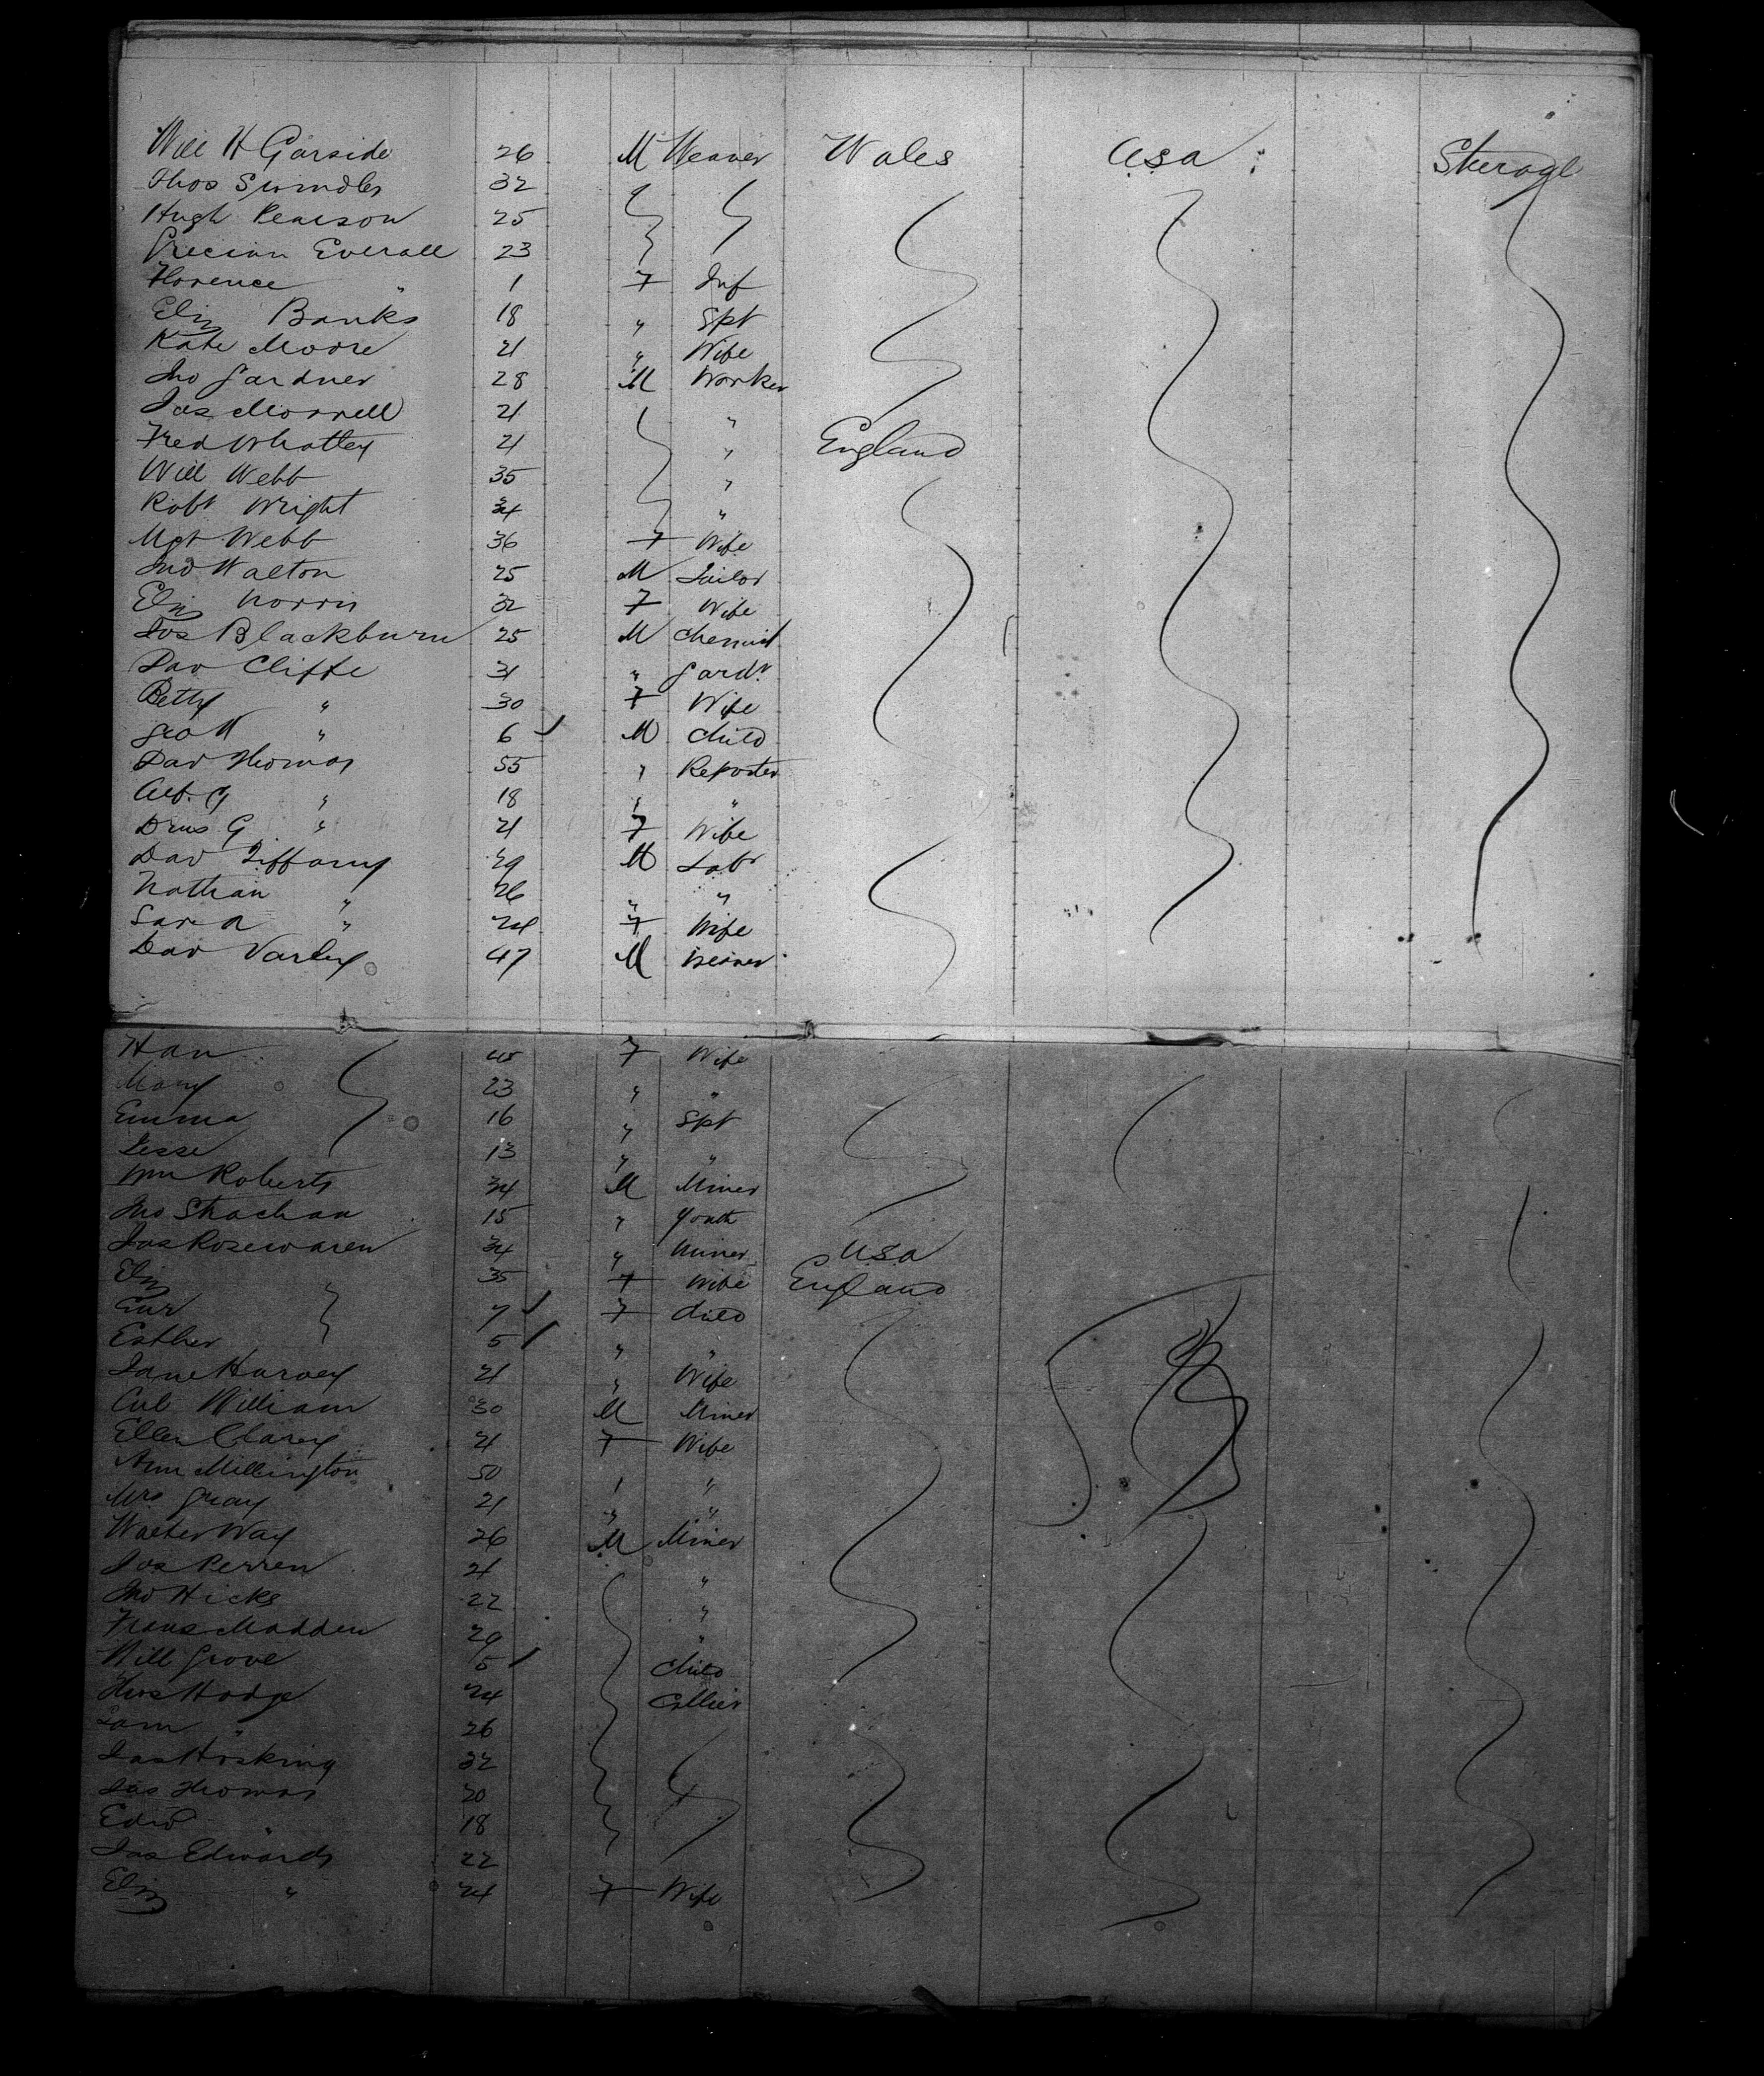 Will H Garside 26 M Weaver Wales USA Sterage
Thos Swindles 32
Hugh Pearson 25
Grecian Everall 23
Florence " 1 F Inf
Eliz Banks 18 " Spt
Kate Moore 21 " Wife
Jno Gardner 28 M Worker
Jas Morrell 21 "
Fred Whatley 21 " England
Will Webb 35 "
Robt Wright 34 "
Mgt Webb 36 F Wife
Jno Walton 25 M Tailor
Eliz Norris 32 F Wife
Jos Blackburn 25 M Chemist
Dav Cliffe 31 " Gardr
Betty " 30 F Wife
Geo W " 6 M Child
Dav Thomas 55 " Reporter
Alb. G " 18 " "
G " 21 F Wife
Dav Tiffany 29 M Labr
Nathan " 26 " "
Sar A " 24 F Wife
Dav Varley 47 M Weaver
Han 45 F Wife
Mary 23 " "
Emma 16 " Spt
Jesse 13 " "
Wm Roberts 34 M Miner
Jno Strachan 15 " Youth
Jas Rosewaren 34 " Miner USA
Eliz 35 F Wife England
7 F Child
Esther 5 " "
Jane Harvey 21 " Wife
William 30 M Miner
Ellen Clarey 21 F Wife
Ann Millington 50 " "
Mrs Gray 21 " "
Walter Way 26 M Miner
Jos Perren 21 "
Jno Hicks 22 "
Frans Madden 29 "
Will Grove 5 Child
Thos Hodge 24 Collier
Sam " 26
Jas Hosking 32
Jas Thomas 20
Edwd " 18
Jas Edwards 22
Eliz " 24 F Wife